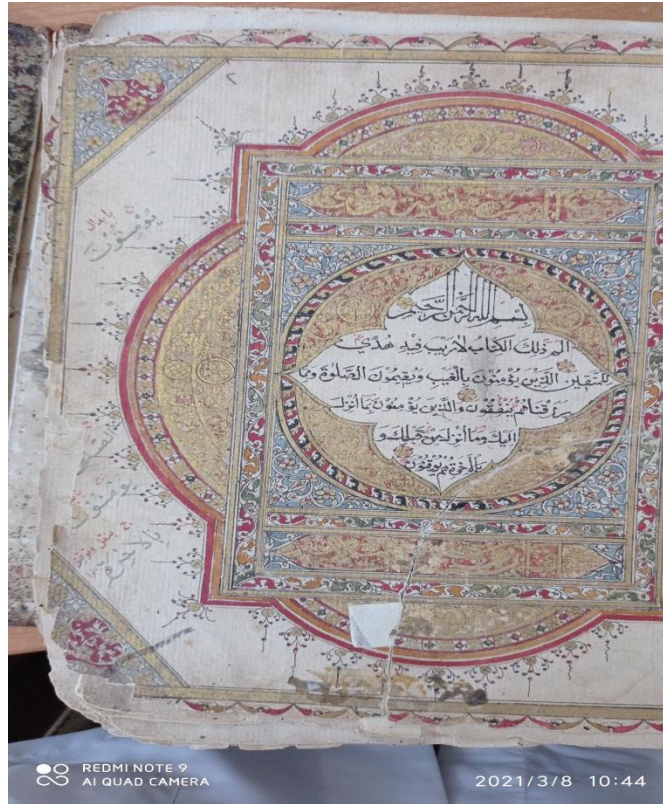 ٢
بسم الله الرحمن الرحيم
الم ذلك الكتاب لاريب فيه هدى
للمتقين الذين يؤمنون بالغيب ويقيمون الصلوة ومما
رزقناهم ينفقون والذين يؤمنون بما انزل
اليك وما أنزل من قبلك و
بالآخرة هم يوقنون
يومنون
يومنون
بالاخرة
REDMI NOTE 9
AI QUAD CAMERA
2021/3/8 10:44